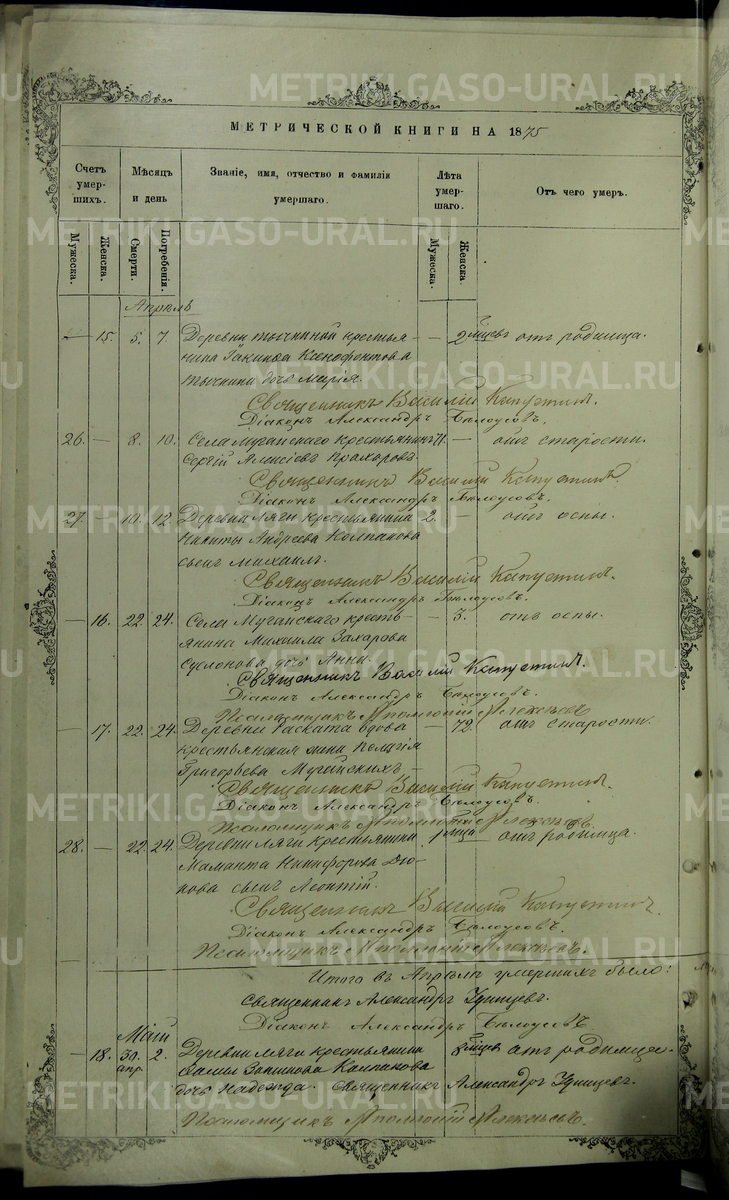 METRIKI.GASO-URAL.RU
МЕТРИЧЕСКОЙ КНИГИ НА 1875
Счетъ умер-шихъ.
Мѣсяцъ и день
Званіе, имя, отчество и фамилія умершаго.
Лѣта умер-шаго.
Отъ чего умеръ.
Мужеска.
Женска.
Смерти.
Погребенія.
Мужеска.
Женска.
Апрѣль
— 15. 5. 7. Деревни Тычкиной крестья- — 2 мѣсц. отъ родимца.
нина Іакинѳа Ксенофонтова
Тычкина дочь Марія.
Священникъ Василій Капустинъ.
Діаконъ Александръ Бѣлоусовъ.
26. — 8. 10. Села Мугайскаго крестьянинъ 71. — отъ старости.
Сергій Алексіевъ Прохоровъ.
Священникъ Василій Капустинъ.
Діаконъ Александръ Бѣлоусовъ.
27. — 10. 12. Деревни Ляги крестьянина 2. — отъ оспы.
Никиты Андреева Колпакова
сынъ Михаилъ.
Священникъ Василій Капустинъ.
Діаконъ Александръ Бѣлоусовъ.
— 16. 22. 24. Села Мугайскаго кресть- — 3. отъ оспы.
янина Михаила Захарова
Суслонова дочь Анна.
Священникъ Василій Капустинъ.
Діаконъ Александръ Бѣлоусовъ.
Псаломщикъ
— 17. 22. 24. Деревни Раската вдова — 72. отъ старости.
крестьянская жена Пелагія
Григорьева Мугайскихъ.
Священникъ Василій Капустинъ.
Діаконъ Александръ Бѣлоусовъ.
Псаломщикъ
28. — 22. 24. Деревни Ляги крестьянина отъ родимца.
Маманта Никифорова Дю-
кова сынъ Леонтій.
Священникъ Василій Капустинъ.
Діаконъ Александръ Бѣлоусовъ.
Псаломщикъ
Итого въ Апрѣлѣ умершихъ было:
Священникъ Александръ Удинцевъ.
Діаконъ Александръ Бѣлоусовъ
Май
— 18. 30. апр. 2. Деревни Ляги крестьянина 8 мѣсц. отъ родимца.
Колпакова
дочь Надежда. Священникъ Александръ Удинцевъ.
Псаломщикъ